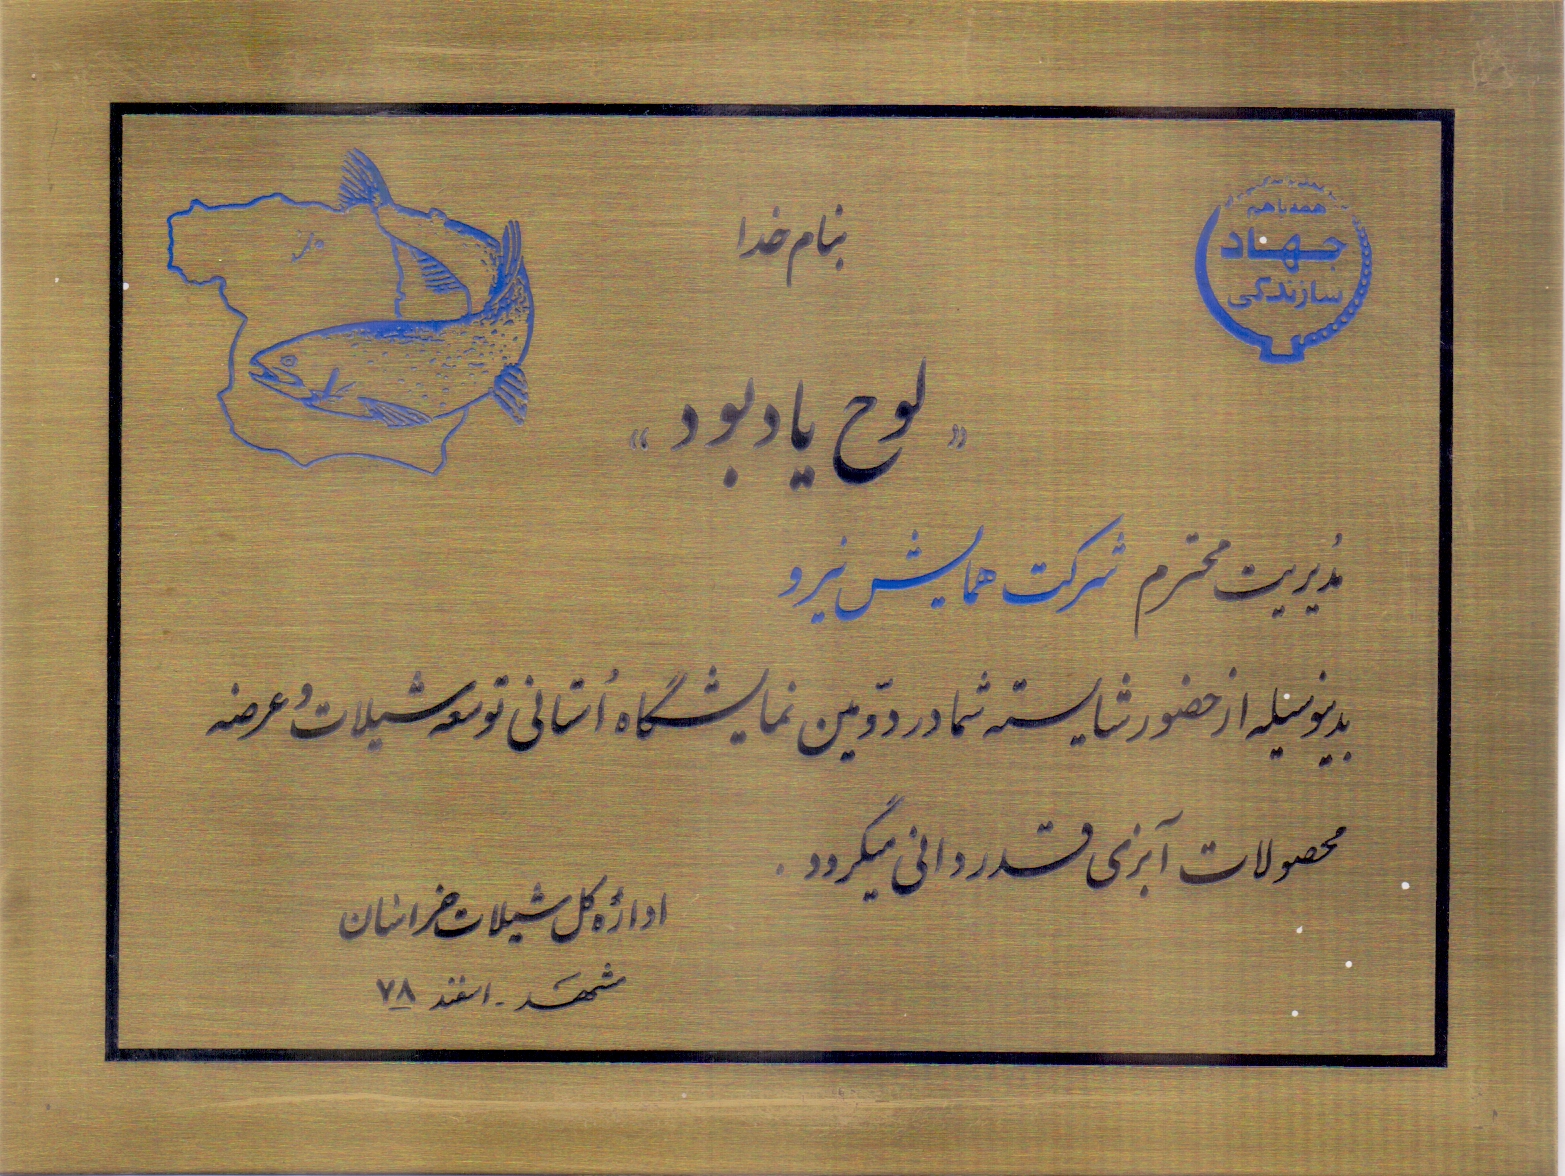 همه با هم
جهاد
سازندگی
بنام خدا
« لوح یادبود »
مُدیریت محترم شرکت همایش نیرو
بدینوسیله از حضور شایسته شما در دوّمین نمایشگاه اُستانی توسعه شیلات و عرضه
محصولات آبزی قدردانی میگردد .
ادارهٔ کل شیلات خراسان
مشهد - اسفند ۷۸